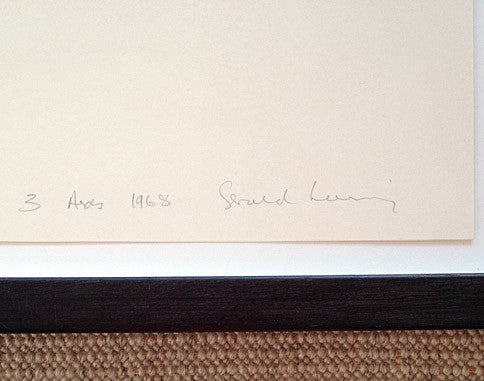 3 Axes 1968 Gerald Laing